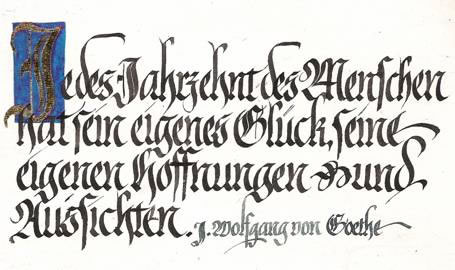 Jedes Jahrzehnt des Menschen
hat sein eigenes Glück, seine
eigenen Hoffnungen und
Aussichten. J. Wolfgang von Goethe